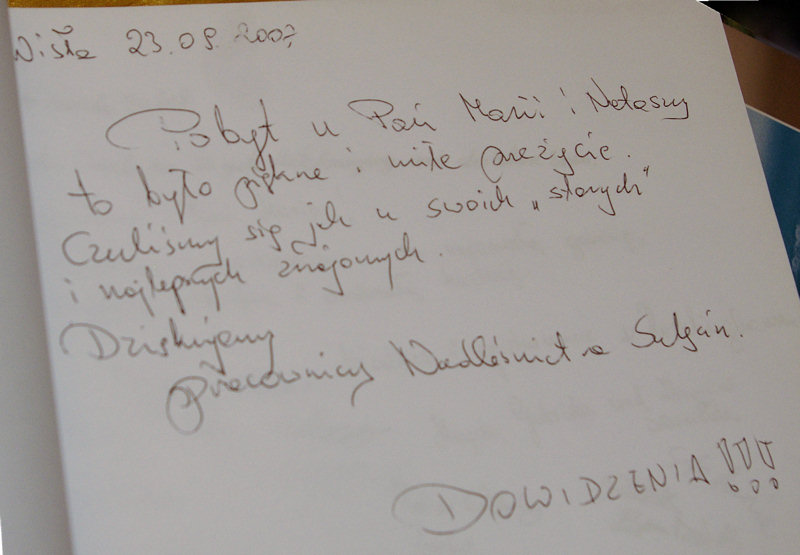 Wisła 23.09.2007
Pobyt u Pań Marii i Nataszy
to było piękne i miłe przeżycie.
Czuliśmy się jak u swoich „starych"
i najlepszych znajomych.
Dziękujemy
pracownicy Nadleśnictwa Sulęcin.
DOWIDZENIA!!!